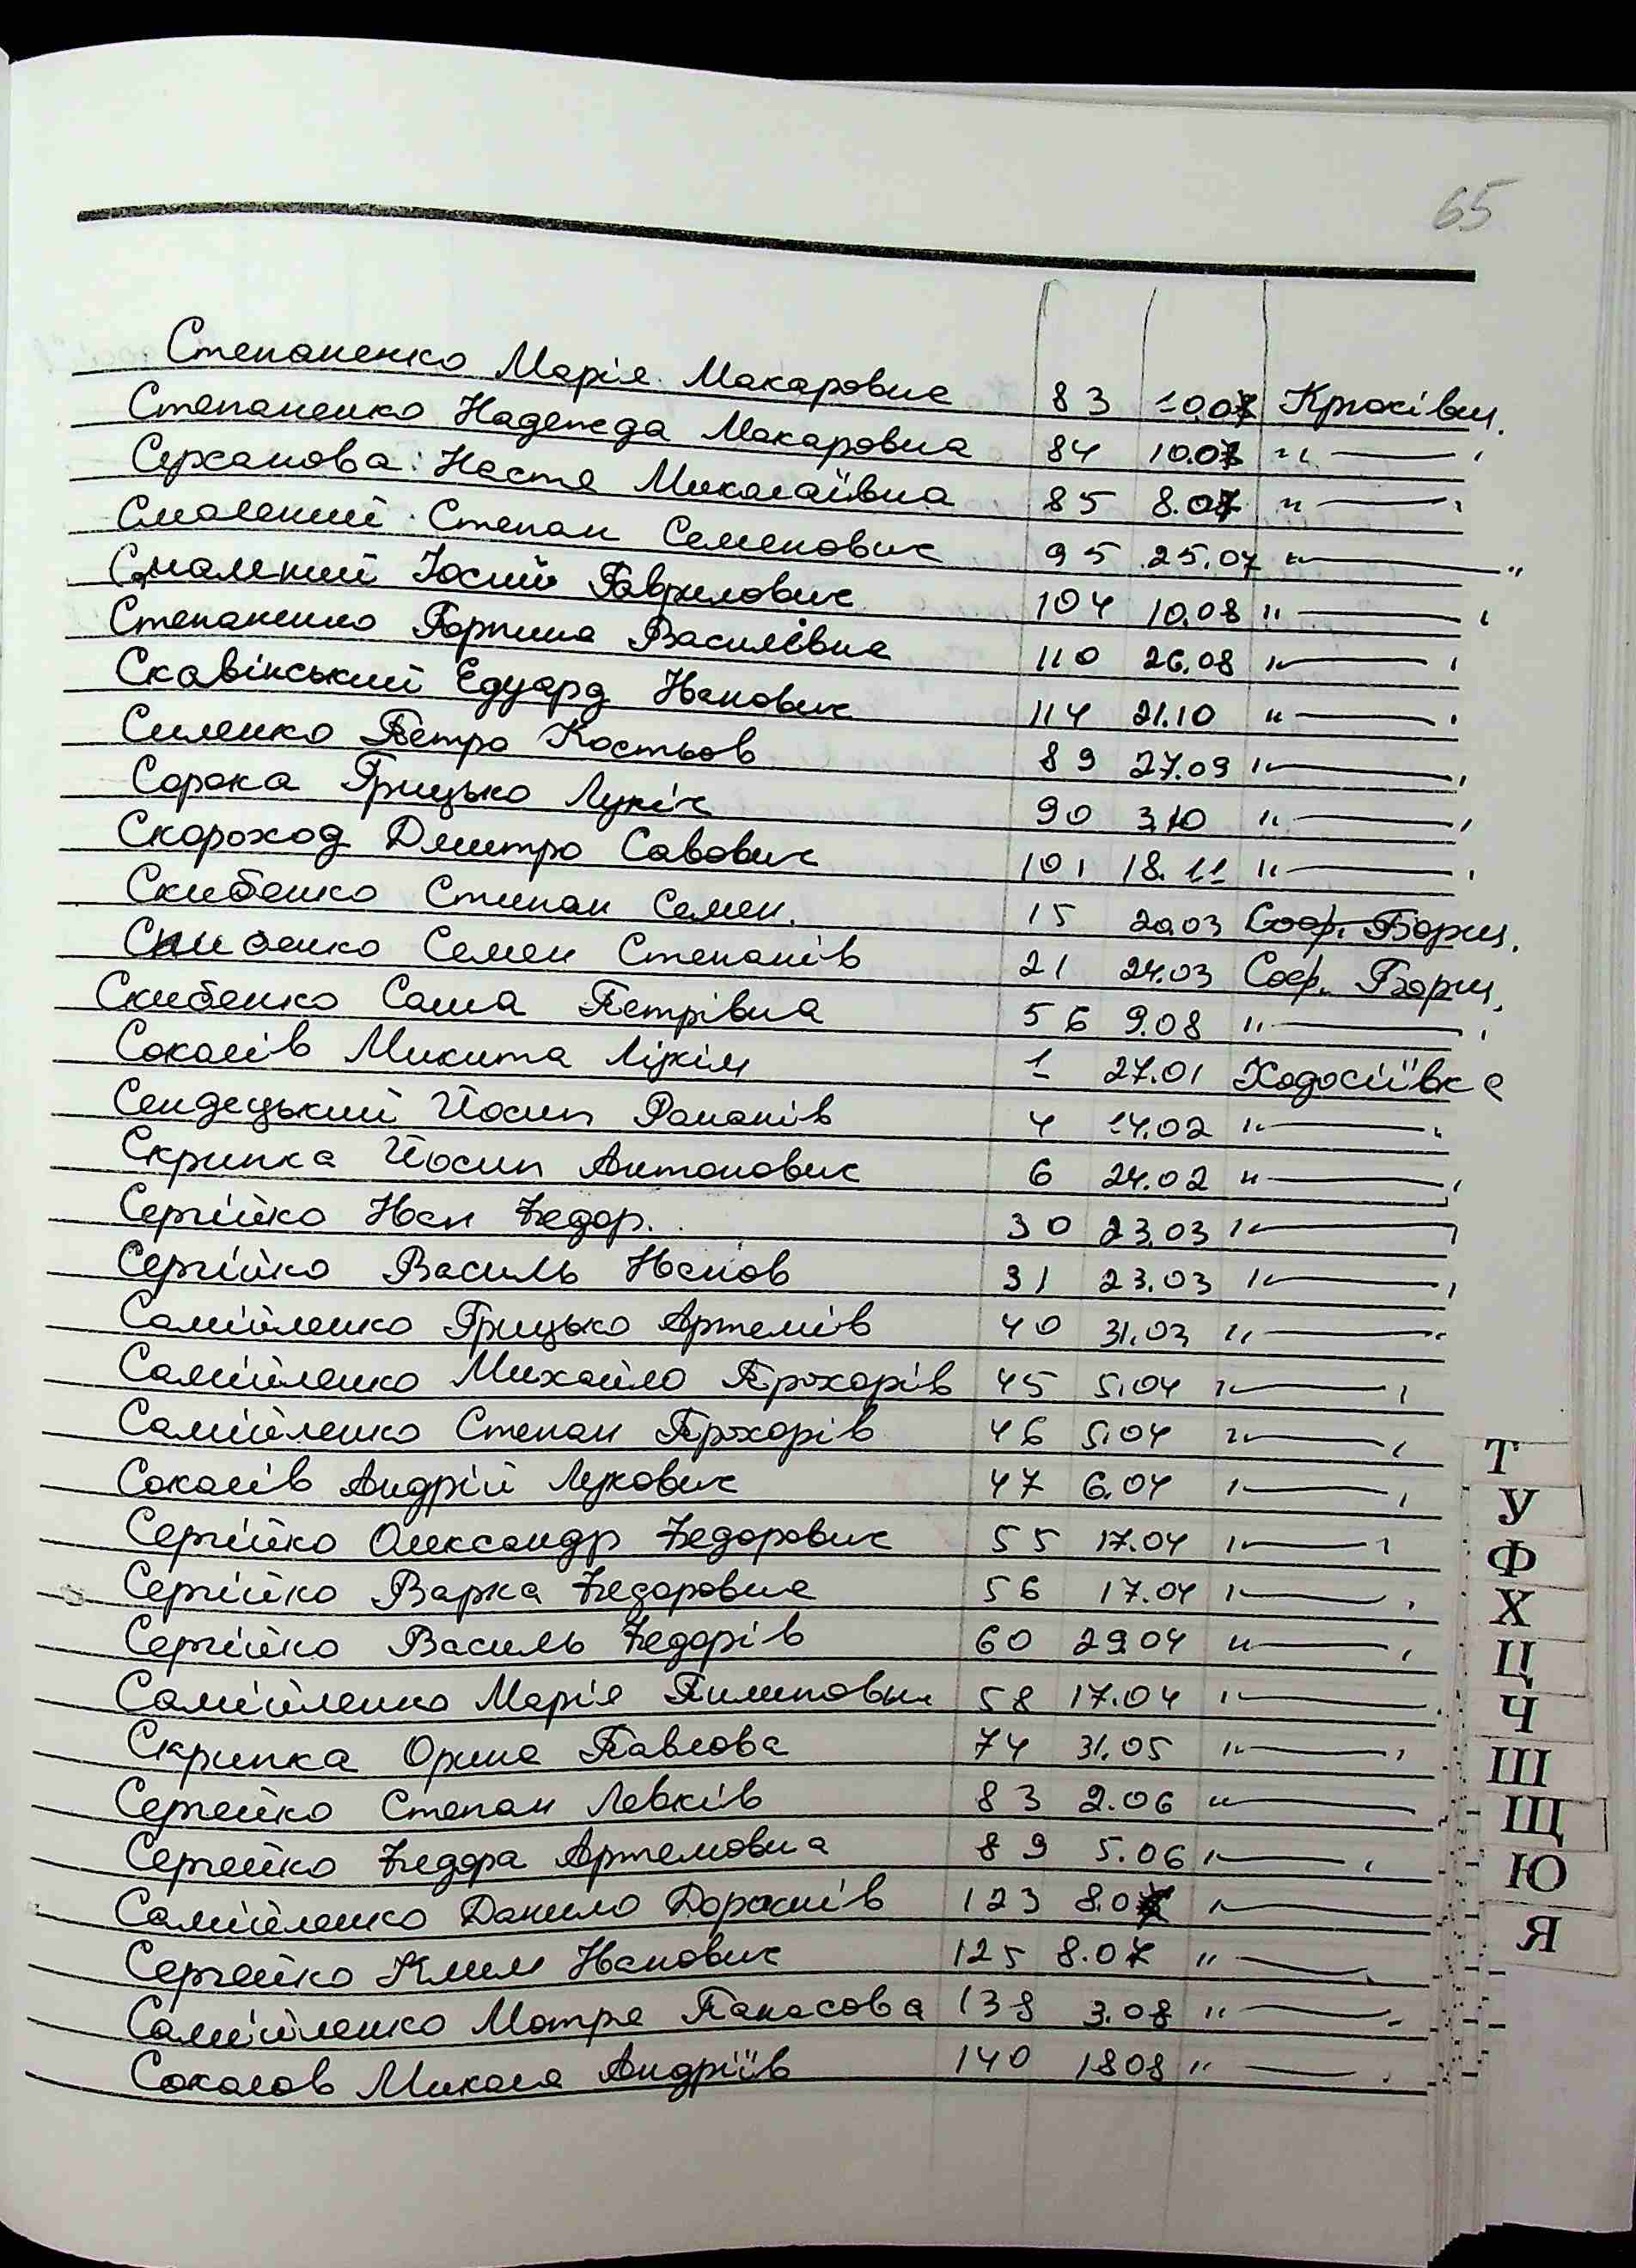 65
Степаненко Марія Макаровна 83 10.07 Крюківщ.
Степаненко Надежда Макаровна 84 10.07 " — "
Серханова Настя Миколаївна 85 8.07 " — "
Смаленый Степан Семенович 95 25.07 " — "
Смаленый Іосип Гаврилович 104 10.08 " — "
Степаненко Горпина Василівна 110 26.08 " — "
Скавінський Едуард Іванович 114 21.10 " — "
Силенко Петро Костьов 89 27.09 " — "
Сорока Грицько Лукіч 90 3.10 " — "
Скороход Дмитро Савович 101 18.11 " — "
Скибенко Степан Семен. 15 20.03 Соф. Борщ.
Скибенко Семен Степанів 21 24.03 Соф. Борщ.
Скибенко Саша Петрівна 56 9.08 " — "
Соколів Микита 1 27.01 Ходосіївка
Сендецький Йосип Романів 4 14.02 " — "
Скрипка Йосип Антонович 6 24.02 " — "
Сергійко Іван Федор. 30 23.03 " — "
Сергійко Василь Іванов 31 23.03 " — "
Самійленко Грицько Артемів 40 31.03 " — "
Самійленко Михайло Прохорів 45 5.04 " — "
Самійленко Степан Прохорів 46 5.04 " — "
Соколів Андрій Лукович 47 6.04 " — "
Сергійко Олександр Федорович 55 17.04 " — "
Сергійко Варка Федоровна 56 17.04 " — "
Сергійко Василь Федорів 60 29.04 " — "
Самійленко Марія Пилиповна 58 17.04 " —
Скрипка Орина Павлова 74 31.05 " — "
Сергейко Степан Левків 83 2.06 " —
Сергейко Федора Артемовна 89 5.06 " — "
Самійленко Данило Дорошів 123 8.07 " —
Сергейко Клим Іванович 125 8.07 " —
Самійленко Мотря Панасова 138 3.08 " —
Соколов Микола Андріїв 140 18.08 " — "
Т
У
Ф
Х
Ц
Ч
Ш
Щ
Ю
Я